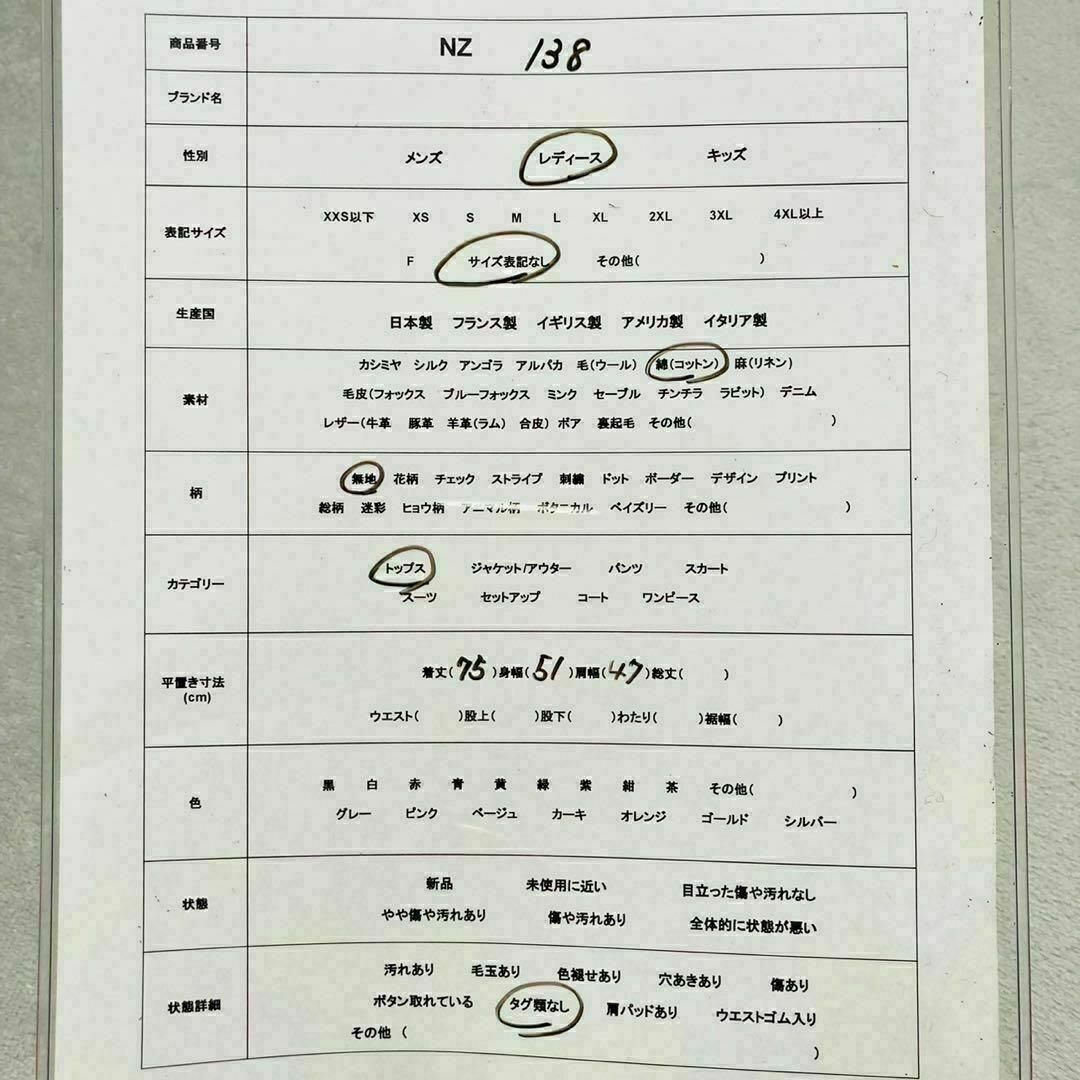 商品番号 NZ 138
ブランド名
性別 メンズ レディース キッズ
表記サイズ XXS以下 XS S M L XL 2XL 3XL 4XL以上
F サイズ表記なし その他( )
生産国 日本製 フランス製 イギリス製 アメリカ製 イタリア製
素材 カシミヤ シルク アンゴラ アルパカ 毛(ウール) 綿(コットン) 麻(リネン)
毛皮(フォックス ブルーフォックス ミンク セーブル チンチラ ラビット) デニム
レザー(牛革 豚革 羊革(ラム) 合皮) ボア 裏起毛 その他( )
柄 無地 花柄 チェック ストライプ 刺繍 ドット ボーダー デザイン プリント
総柄 迷彩 ヒョウ柄 アニマル柄 ボタニカル ペイズリー その他( )
カテゴリー トップス ジャケット/アウター パンツ スカート
スーツ セットアップ コート ワンピース
平置き寸法 (cm) 着丈(75)身幅(51)肩幅(47)総丈( )
ウエスト( )股上( )股下( )わたり( )裾幅( )
色 黒 白 赤 青 黄 緑 紫 紺 茶 その他( )
グレー ピンク ベージュ カーキ オレンジ ゴールド シルバー
状態 新品 未使用に近い 目立った傷や汚れなし
やや傷や汚れあり 傷や汚れあり 全体的に状態が悪い
状態詳細 汚れあり 毛玉あり 色褪せあり 穴あきあり 傷あり
ボタン取れている タグ類なし 肩パッドあり ウエストゴム入り
その他 ( )